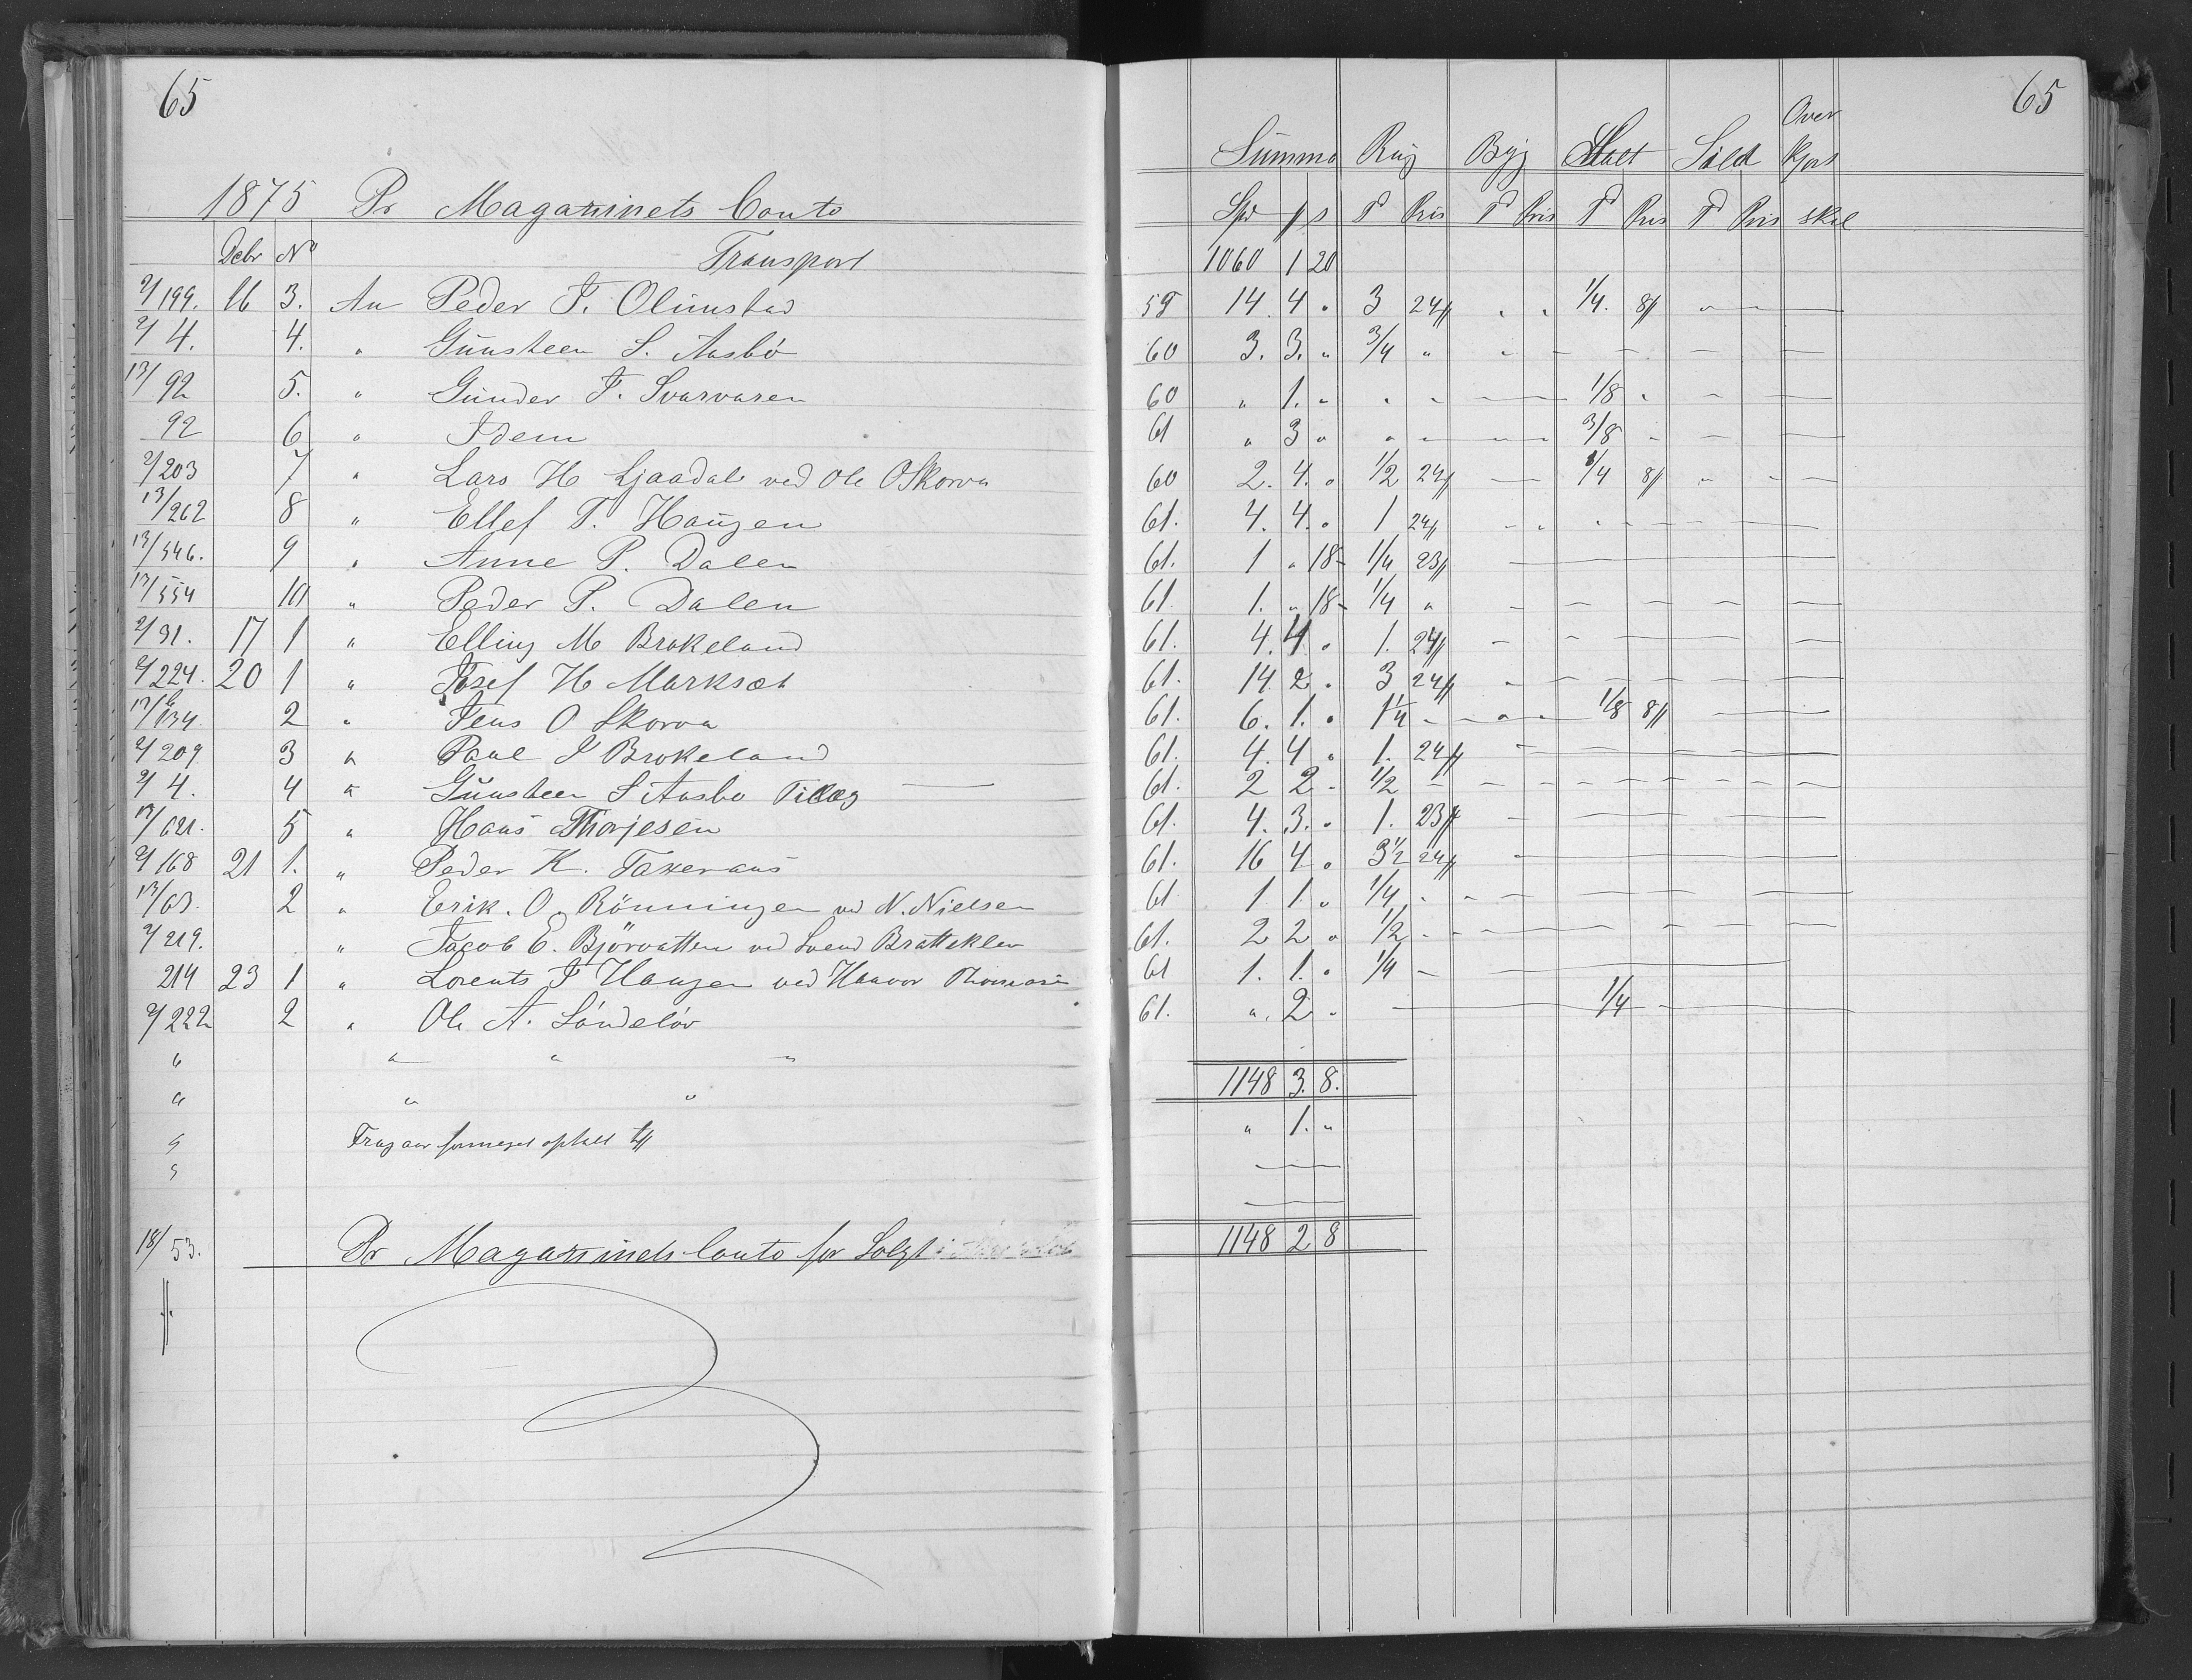 65
1875 Pr Magazinets Conto
Debr No Transport
2/199. 16 3. An Peder T. Olimstad
2/4. 4. " Gunsteen S. Aasbö
13/92 5. " Gunder T. Svarvaren
92 6 " Idem
2/203 7 " Lars H Ljaadal ved Ole O Skorva
13/262 8 " Ellef T. Haugen
13/546. 9 " Anne P. Dalen
13/554 10 " Peder P. Dalen
2/31. 17 1 " Elling M Brokeland
2/224. 20 1 " Josef H Marksæt
134 2 " Jens O Skorva
2/209 3 " Paul J Brokeland
2/4. 4 " Gunsteen S Aasbo Tillæg
13/621. 5 " Hans Thorjesen
2/168 21 1. " Peder K. Taxeraas
13/63. 2 " Erik. O. Rönningen vd N. Nielsen
2/219. " Jacob E. Björvatten ved Svend Bratteklev
214 23 1 " Lorents F Haugen ved Haavor
2/222 2 " Ole A. Söndelöv
" " " "
" " "
"
"
18/53. Pr Magazinets Conto for Solgt
65
Summa Rug Byg Malt Sild Over kjørt
Spd ß s T Pris T Pris T Pris T Pris skil
1060 1 20
59 14. 4 " 3 24ß " " 1/4. 8ß " — —
60 3. 3. " 3/4 " " — — — — —
60 " 1. " " " — — 1/8 " — —
61 " 3 " " " — — 3/8 " — —
60 2. 4. " 1/2 24ß — — 1/4 8ß " " —
61. 4. 4. " 1 24ß " " " — — —
61. 1 " 18 1/4 23ß —
61 1. " 18 1/4 " — — — — —
61. 4. 4 " 1. 24ß — — — — —
61. 14 2 " 3 24ß " — — — — — —
61. 6. 1. " 1 1/4 " — " " 1/8 8ß — —
61. 4. 4 " 1. 24ß —
61. 2 2 " 1/2 — — — — — — — —
61. 4. 3. " 1. 23ß — —
61. 16 4 " 3 1/2 24ß —
61 1 1. " 1/4 " " — — — — —
61. 2 2 " 1/2 " — — — — — —
61 1. 1. " 1/4 — —
61. " 2 " — 1/4 —
1148 3. 8.
" 1. "
—
—
1148 2 8